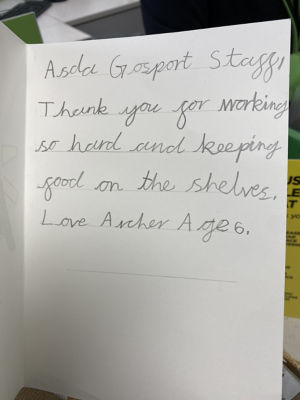 Asda Gosport Staff,
Thank you for working
so hard and keeping
food on the shelves.
Love Archer Age 6.